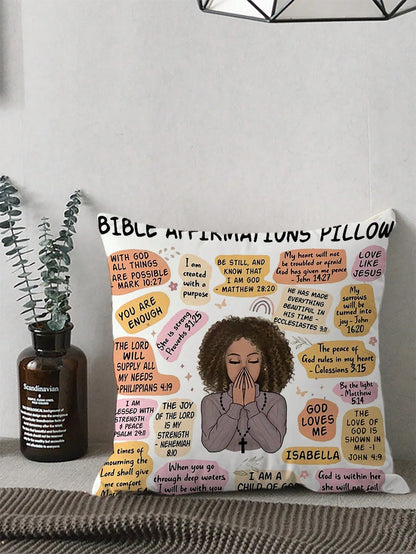 BIBLE AFFIRMATIONS PILLOW
WITH GOD
ALL THINGS
ARE POSSIBLE
- MARK 10:27
I am
created
with a
purpose
BE STILL, AND
KNOW THAT
I AM GOD
- MATTHEW 28:20
My heart will not
be troubled or afraid
God has given me peace
- John 14:27
LOVE
LIKE
JESUS
YOU ARE
ENOUGH
She is strong
Proverbs 31:25
HE HAS MADE
EVERYTHING
BEAUTIFUL IN
HIS TIME -
ECCLESIASTES 3:11
My
sorrows
will be
turned into
joy - John
16:20
THE LORD
WILL
SUPPLY ALL
MY NEEDS
PHILIPPIANS 4:19
The peace of
God rules in my heart
- Colossians 3:15
Be the light
- Matthew
5:14
I AM
BLESSED WITH
STRENGTH
& PEACE
PSALM 29:11
THE JOY
OF THE LORD
IS MY
STRENGTH
- NEHEMIAH
8:10
GOD
LOVES
ME
THE
LOVE OF
GOD IS
SHOWN IN
ME - 1
JOHN 4:9
ISABELLA
times of
mourning the
Lord shall give
me comfort
When you go
through deep waters
I will be with you
I AM A
CHILD OF GOD
God is within her
she will not fail
Scandinavian